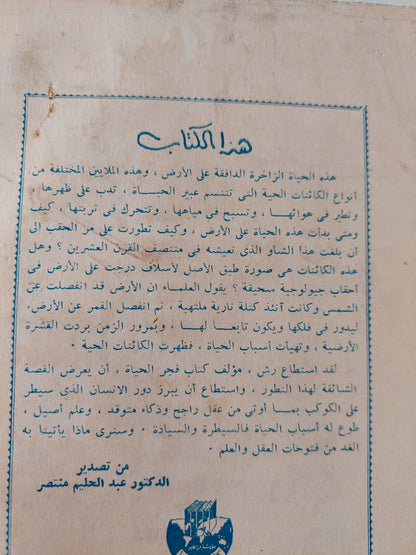 هذا الكتاب
هذه الحياة الزاخرة الدافقة على الأرض ، وهذه الملايين المختلفة من
أنواع الكائنات الحية التى تتنسم عبير الحيــاة ، تدب على ظهرها ،
وتطير فى هوائهـا ، وتسبح فى مياهها ، وتتحرك فى تربتها ، كيف
ومتى بدأت هذه الحياة على الأرض ، وكيف تطورت على مر الحقب الى
أن بلغت هذا الشأو الذى نعيشه فى منتصف القرن العشرين ؟ وهل
هذه الكائنات هى صورة طبق الأصل لأسلاف درجت على الأرض فى
أحقاب جيولوجية سحيقة ؟ يقول العلمـاء ان الأرض قد انفصلت عن
الشمس وكانت آنئذ كتلة نارية ملتهبة ، ثم انفصل القمر عن الأرض،
ليدور فى فلكها ويكون تابعـا لهـا ، وبمرور الزمن بردت القشرة
الأرضية ، وتهيأت أسباب الحياة ، فظهرت الكائنات الحية .
لقد استطاع رش ، مؤلف كتاب فجر الحياة ، أن يعرض القصة
الشائقة لهذا التطور ، واستطاع أن يبرز دور الانسان الذى سيطر
على الكوكب بمـا أوتى من عقل راجح وذكاء متوقد ، وعلم أصيل ،
طوع له أسباب الحياة فالسيطرة والسيادة . وسنرى ماذا يأتينا به
الغد من فتوحات العقل والعلم .
من تصدير
الدكتور عبد الحليم منتصر